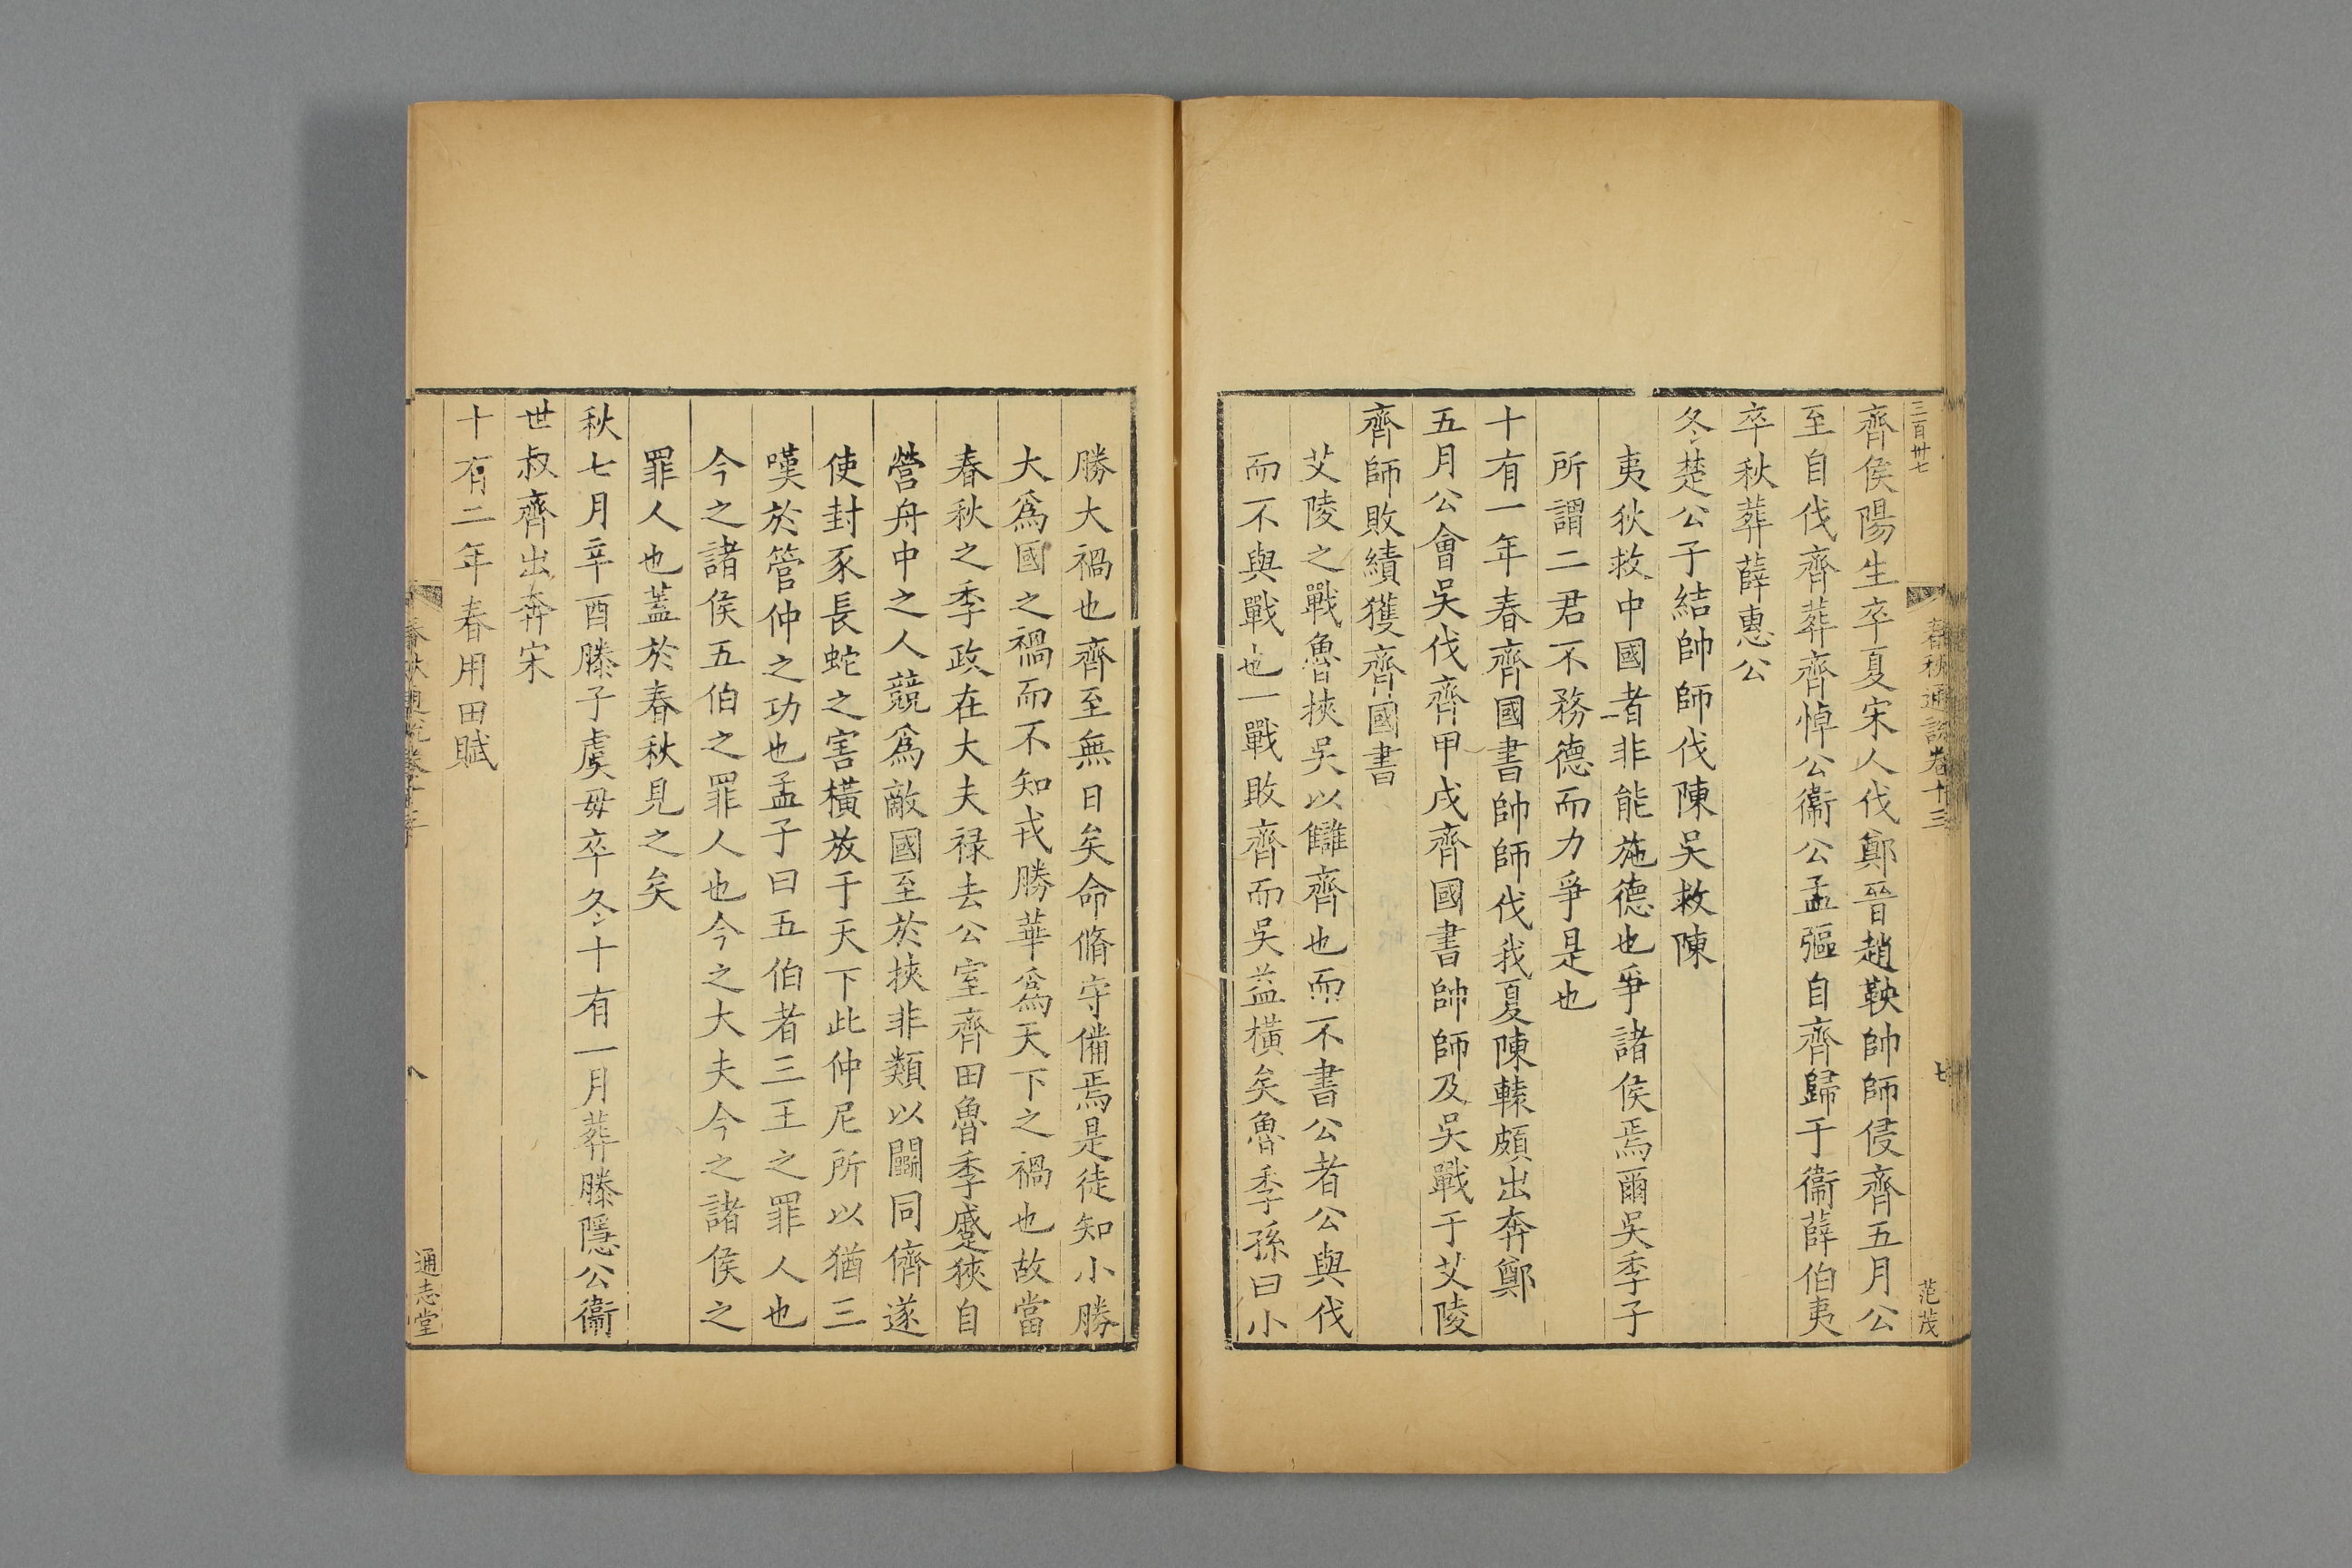 三百卅七
春秋通說卷十三
七
范茂
齊侯陽生卒夏宋人伐鄭晉趙鞅帥師侵齊五月公
至自伐齊葬齊悼公衞公孟彄自齊歸于衞薛伯夷
卒秋葬薛惠公
冬楚公子結帥師伐陳吳救陳
夷狄救中國者非能施德也爭諸侯焉爾吳季子
所謂二君不務德而力爭是也
十有一年春齊國書帥師伐我夏陳轅頗出奔鄭
五月公會吳伐齊甲戌齊國書帥師及吳戰于艾陵
齊師敗績獲齊國書
艾陵之戰魯挾吳以讎齊也而不書公者公與伐
而不與戰也一戰敗齊而吳益橫矣魯季孫曰小
勝大禍也齊至無日矣命脩守備焉是徒知小勝
大爲國之禍而不知戎勝華爲天下之禍也故當
春秋之季政在大夫祿去公室齊田魯季蹙狹自
營舟中之人競爲敵國至於挾非類以鬭同儕遂
使封豕長蛇之害橫放于天下此仲尼所以猶三
嘆於管仲之功也孟子曰五伯者三王之罪人也
今之諸侯五伯之罪人也今之大夫今之諸侯之
罪人也蓋於春秋見之矣
秋七月辛酉滕子虞毋卒冬十有一月葬滕隱公衞
世叔齊出奔宋
十有二年春用田賦
春秋通說卷十三
八
通志堂